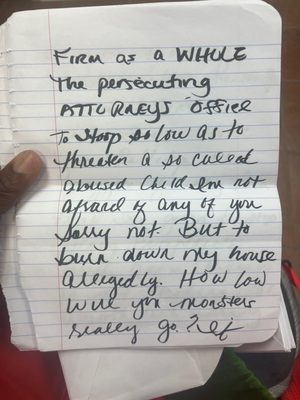 FIRM as a WHOLE
The persecuting
ATTORNEYS Office
To stoop so low as to
threaten a so called
abused child Im not
afraid of any of you
Sorry not. But to
burn down my house
allegedly. How low
will you monsters
really go?